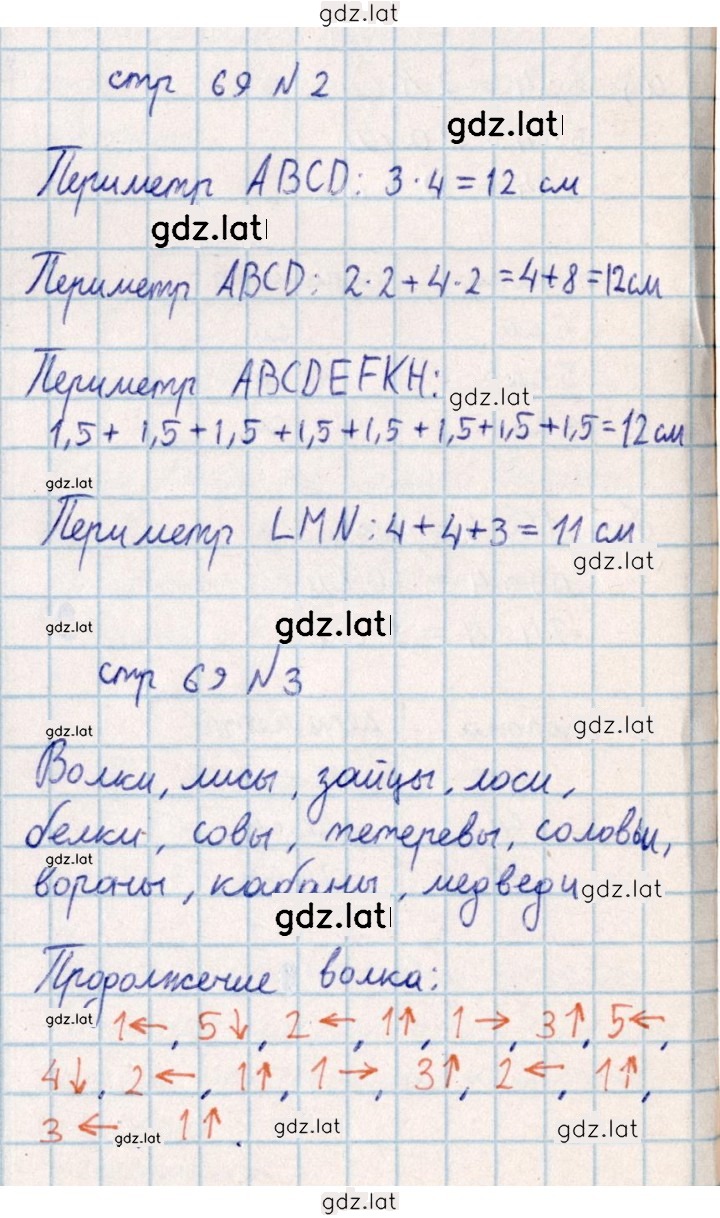 gdz.lat
стр 69 N 2
gdz.lat
Периметр ABCD: 3·4=12 см
gdz.lat
Периметр ABCD: 2·2+4·2=4+8=12см
Периметр ABCDEFKH:
gdz.lat
1,5+1,5+1,5+1,5+1,5+1,5+1,5+1,5=12см
gdz.lat
Периметр LMN: 4+4+3=11 см
gdz.lat
gdz.lat gdz.lat
стр 69 N 3
gdz.lat gdz.lat
Волки, лисы, зайцы, лоси,
белки, совы, тетеревы, соловьи,
gdz.lat
вораны, кабаны, медведи gdz.lat
gdz.lat
Продолжение волка:
gdz.lat 1←, 5↓, 2←, 1↑, 1→, 3↑, 5←,
4↓, 2←, 1↑, 1→, 3↑, 2←, 1↑,
3← 1↑.
gdz.lat gdz.lat gdz.lat
gdz.lat